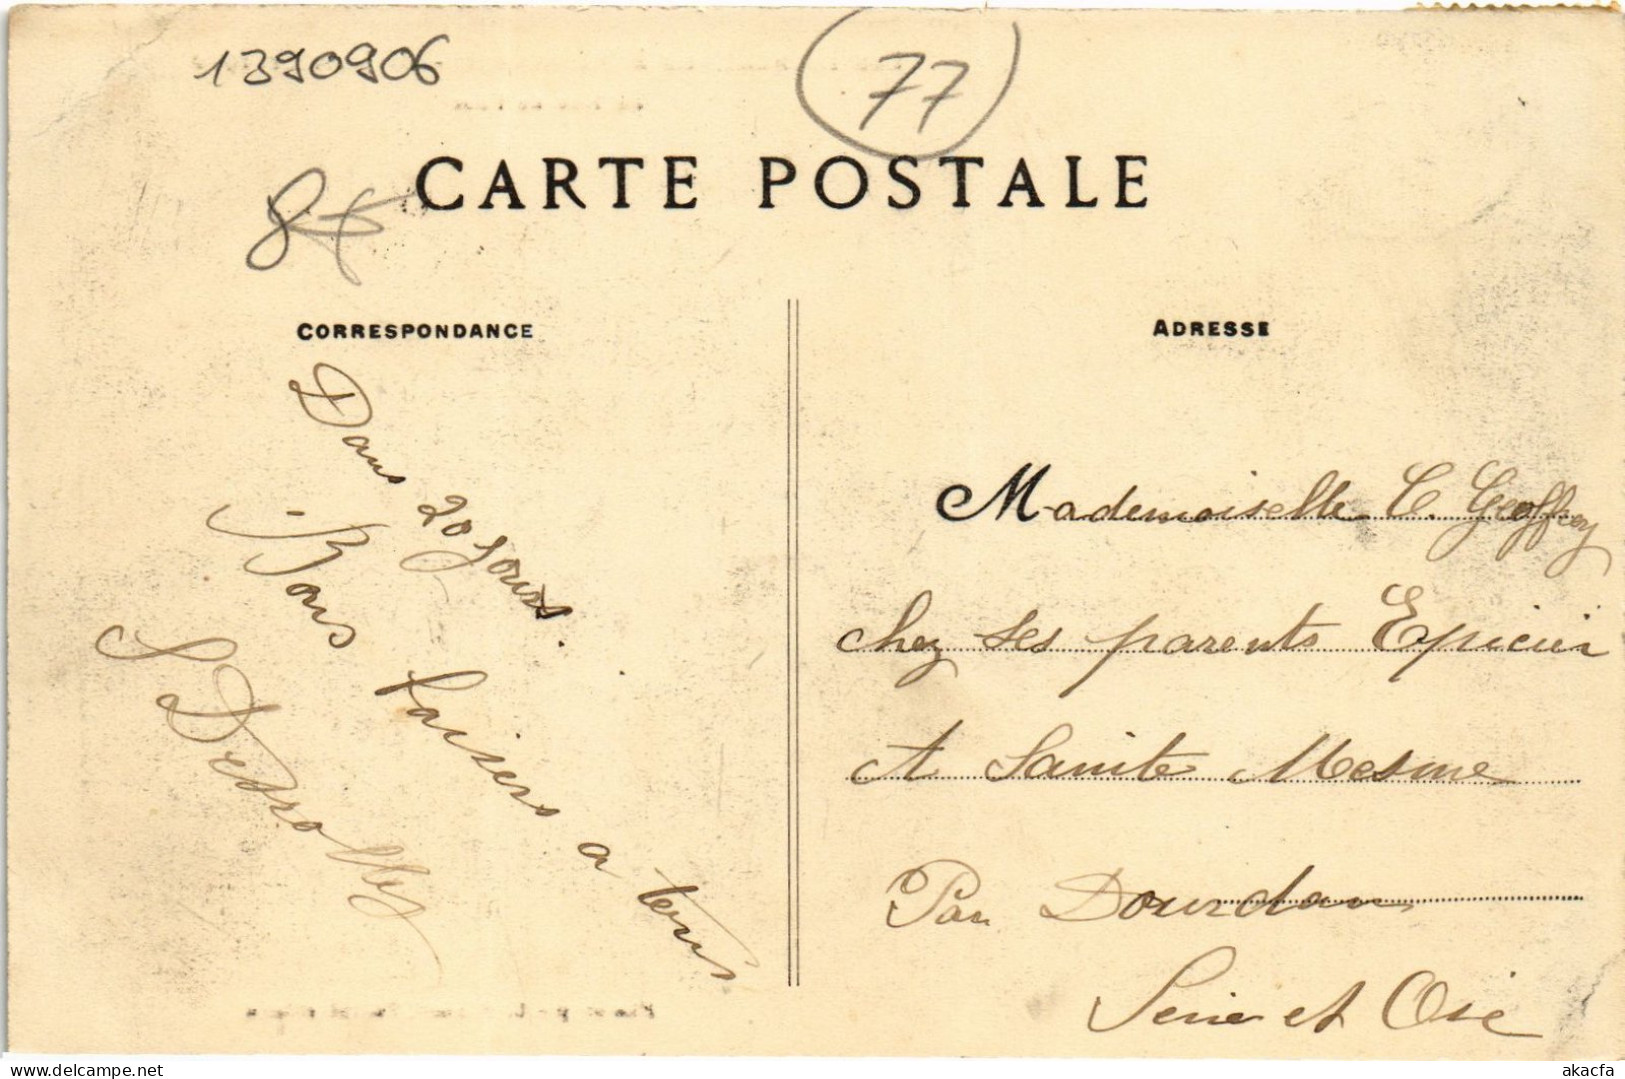 1390906
77
CARTE POSTALE
CORRESPONDANCE
Dans 20 Jours.
Bons baisers a tous
ADRESSE
Mademoiselle C. Geoffroy
chez ses parents Epicier
A Sainte Mesme
Par Dourdan
Seine et Oise
akacfa
delcampe.net